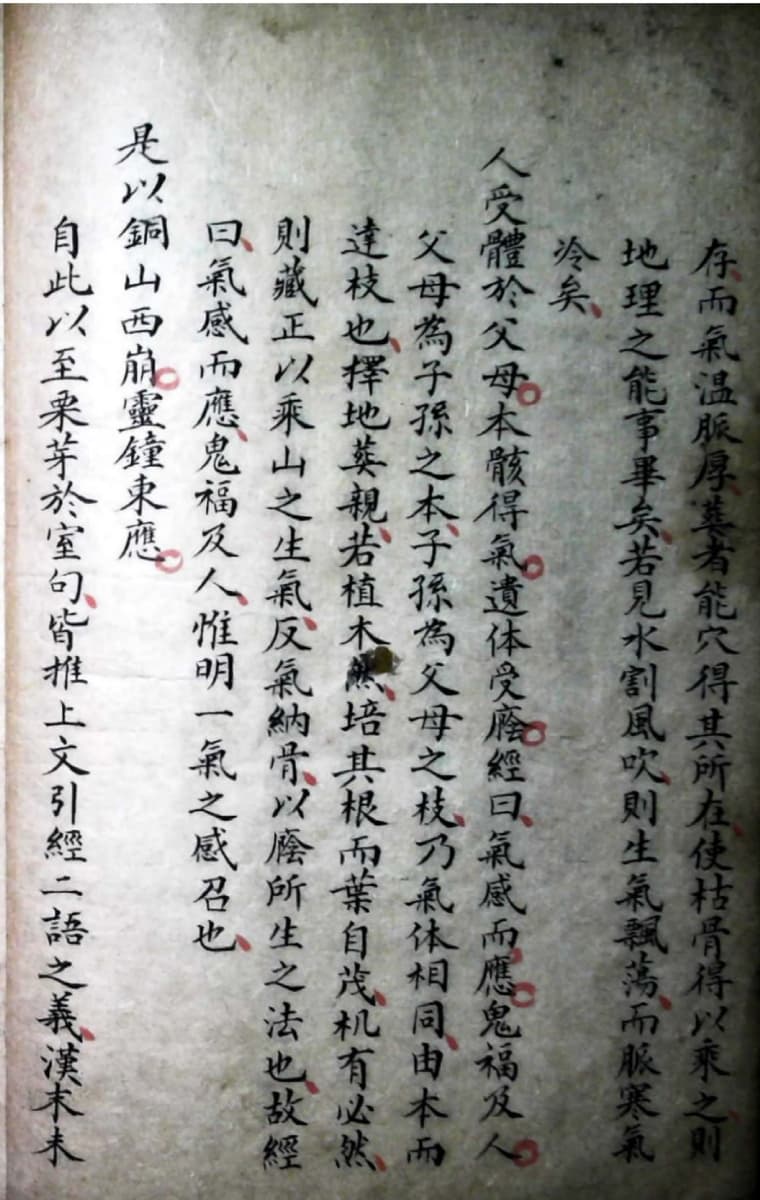 存而氣温脈厚、塟者能穴得其所在、使枯骨得以乘之、則
地理之能事畢矣、若見水割風吹、則生氣飄蕩、而脈寒氣
冷矣、
人受體於父母。本骸得氣。遺体受廕。經曰、氣感而應。鬼福及人。
父母為子孫之本、子孫為父母之枝、乃氣体相同、由本而
達枝也、擇地葬親、若植木然、培其根而葉自茂、机有必然、
則藏正以乘山之生氣、反氣納骨、以廕所生之法也、故經
曰、氣感而應、鬼福及人、惟明一氣之感召也、
是以銅山西崩。靈鐘東應。
自此以至栗芽於室句、皆推上文引經二語之義、漢末未